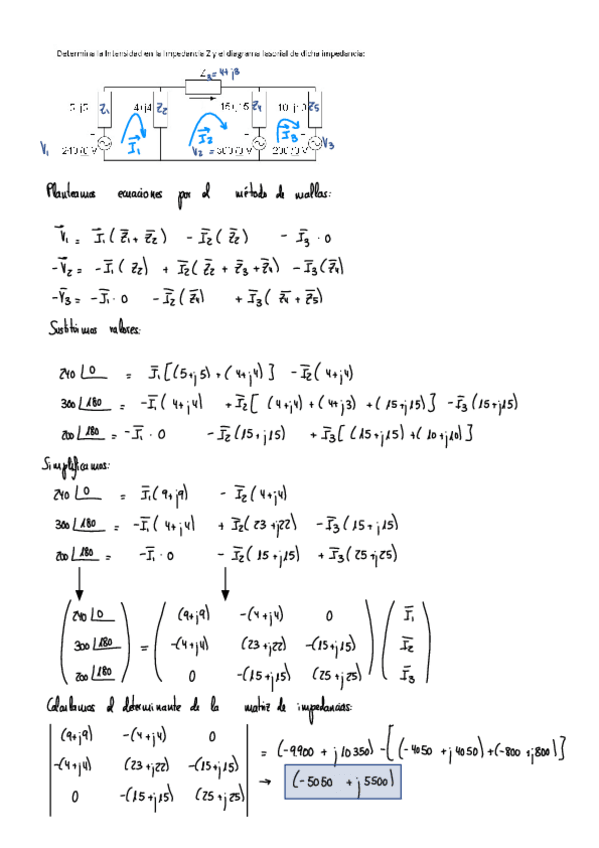 Determina la Intensidad en la Impedancia Z y el diagrama fasorial de dicha impedancia:
Z₃ = 4+j3
5+j5 Z₁ 4+j4 Z₂ 15+j15 Z₄ 10+j10 Z₅
I₁ I₂ I₃
V₁ 240/0 V V₂ = 300/0 V 200/0 V V₃
Planteamos ecuaciones por el método de mallas:
V₁ = I₁(Z₁+Z₂) - I₂(Z₂) - I₃·0
-V₂ = -I₁(Z₂) + I₂(Z₂+Z₃+Z₄) - I₃(Z₄)
-V₃ = -I₁·0 - I₂(Z₄) + I₃(Z₄+Z₅)
Sustituimos valores:
240∠0 = I₁[(5+j5)+(4+j4)] - I₂(4+j4)
300∠180 = -I₁(4+j4) + I₂[(4+j4)+(4+j3)+(15+j15)] - I₃(15+j15)
200∠180 = -I₁·0 - I₂(15+j15) + I₃[(15+j15)+(10+j10)]
Simplificamos:
240∠0 = I₁(9+j9) - I₂(4+j4)
300∠180 = -I₁(4+j4) + I₂(23+j22) - I₃(15+j15)
200∠180 = -I₁·0 - I₂(15+j15) + I₃(25+j25)
240∠0 (9+j9) -(4+j4) 0 I₁
300∠180 = -(4+j4) (23+j22) -(15+j15) I₂
200∠180 0 -(15+j15) (25+j25) I₃
Calculamos el determinante de la matriz de impedancias:
(9+j9) -(4+j4) 0
-(4+j4) (23+j22) -(15+j15) = (-9900 + j10350) - [(-4050 + j4050)+(-800+j800)]
0 -(15+j15) (25+j25) → (-5050 + j5500)